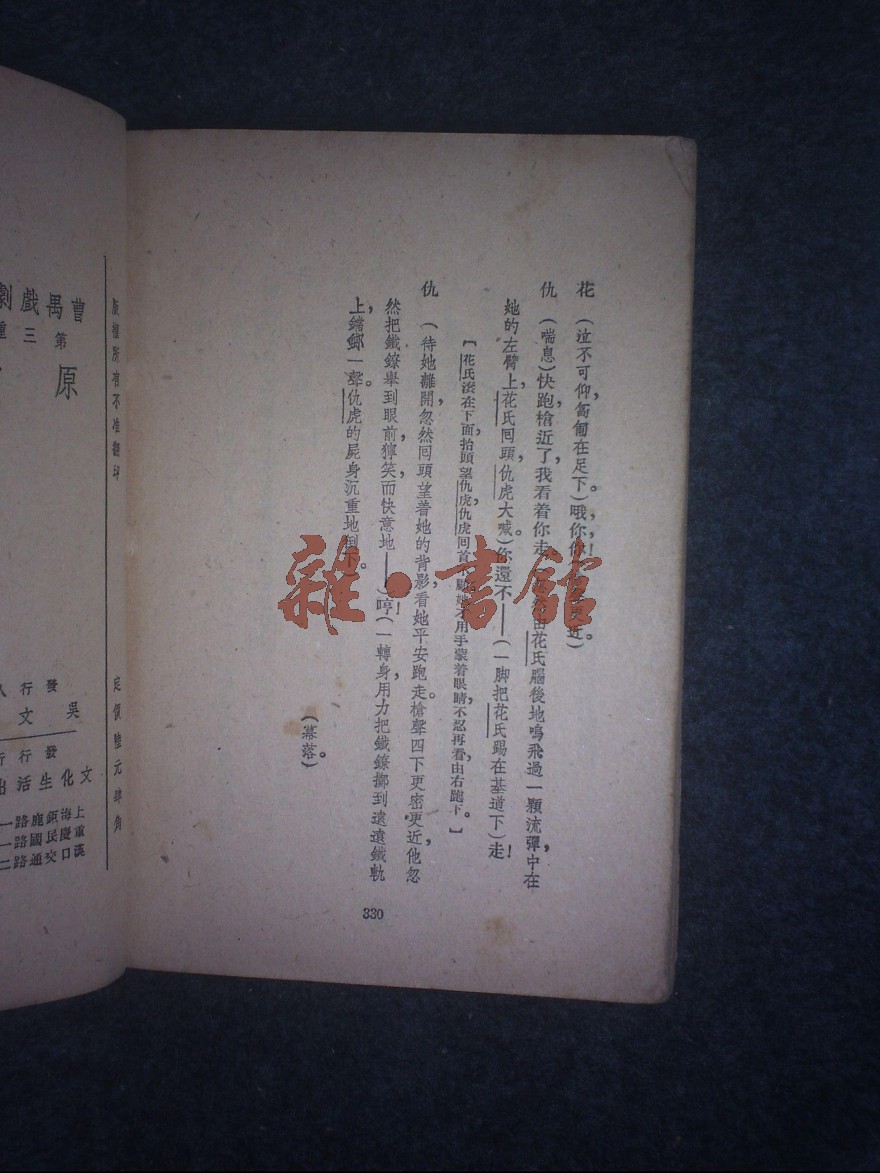 花 (泣不可仰,匍匐在足下。)哦,
仇 (喘息)快跑,槍近了,我看着你走。花氏腦後地嗚飛過一顆流彈,中在
她的左臂上,花氏回頭,仇虎大喊)你還不——(一脚把花氏踢在基道下)走!
【花氏滚在下面,抬頭望仇虎,仇虎回首,不用手蒙着眼睛不忍再看,由右跑下。】
仇 (待她離開,忽然回頭望着她的背影,看她平安跑走。槍聲四下更密更近,他忽
然把鐵鐐舉到眼前,獰笑而快意地——)哼!(一轉身,用力把鐵鐐擲到遠遠鐵軌
上,鐺鎯一聲。仇虎的屍身沉重地倒下。
(幕落。)
330
版權所有不准翻印
定價陸元肆角
曹禺戲劇
第三
原
發行
吳文
發行
文化生活出
上海鉅鹿路一
重慶民國路一
漢口交通路二
雜·書館